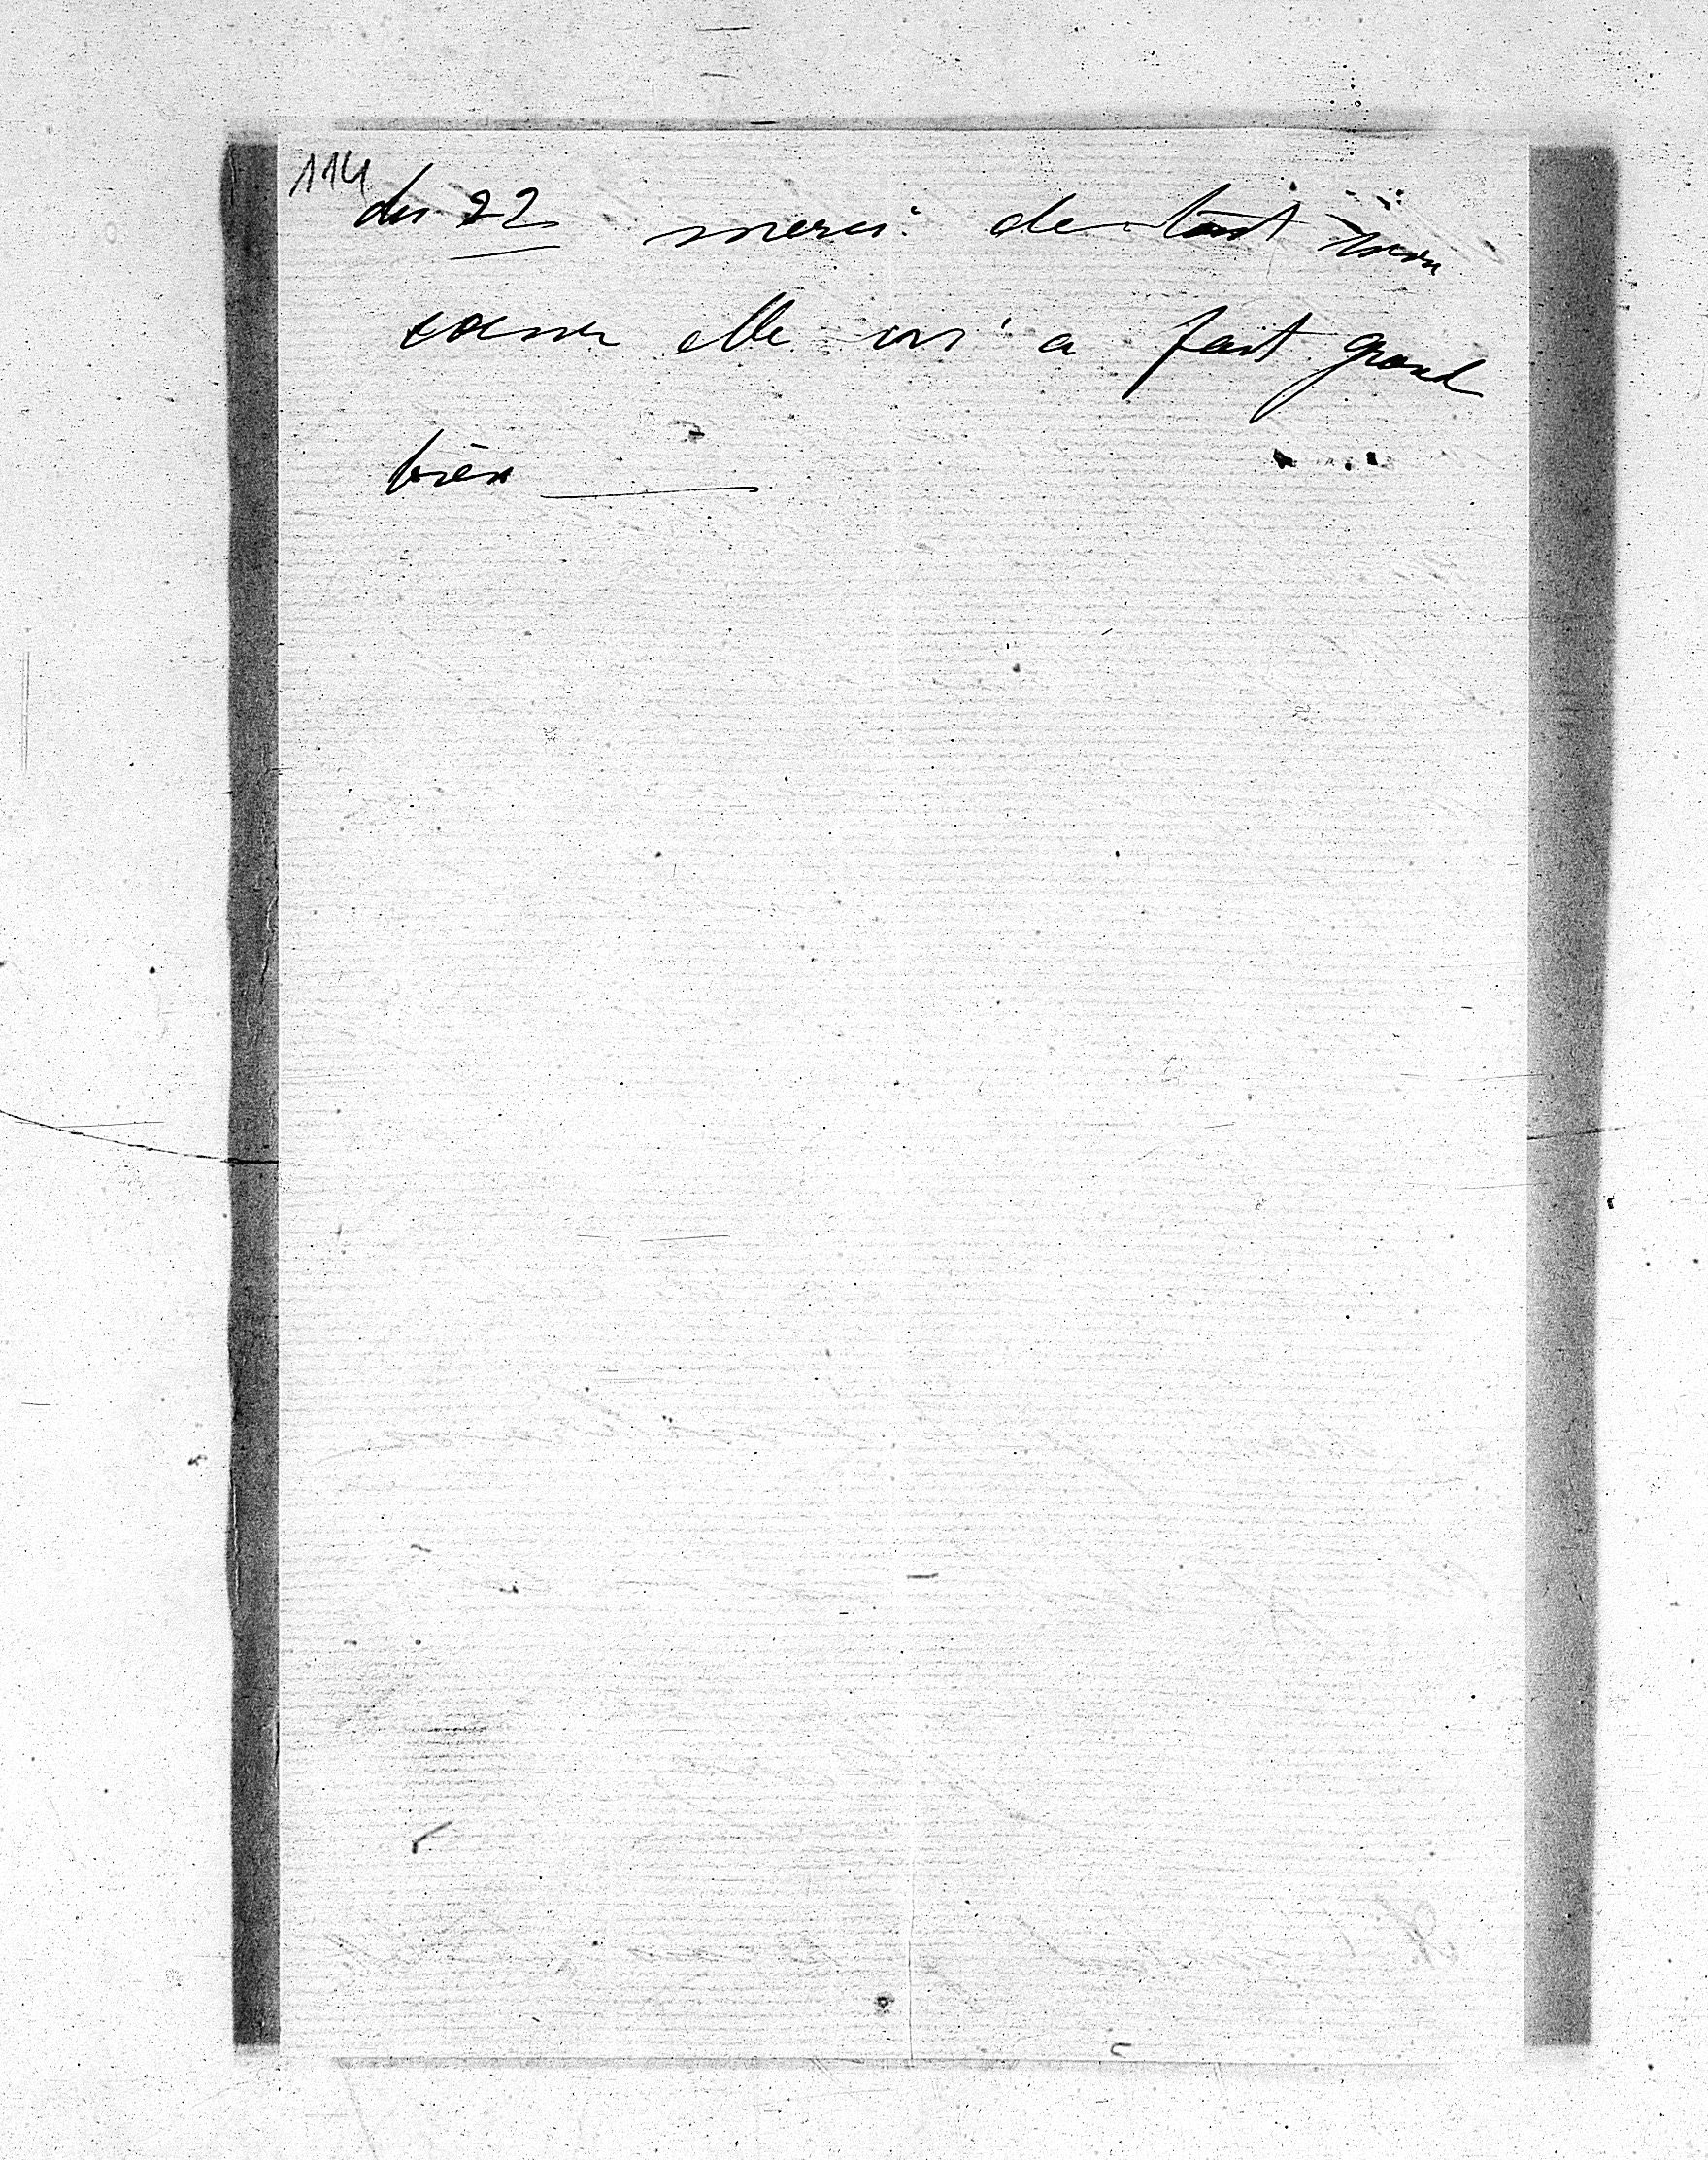 114
du 22 merci de tout mon
coeur elle m'a fait grand
bien